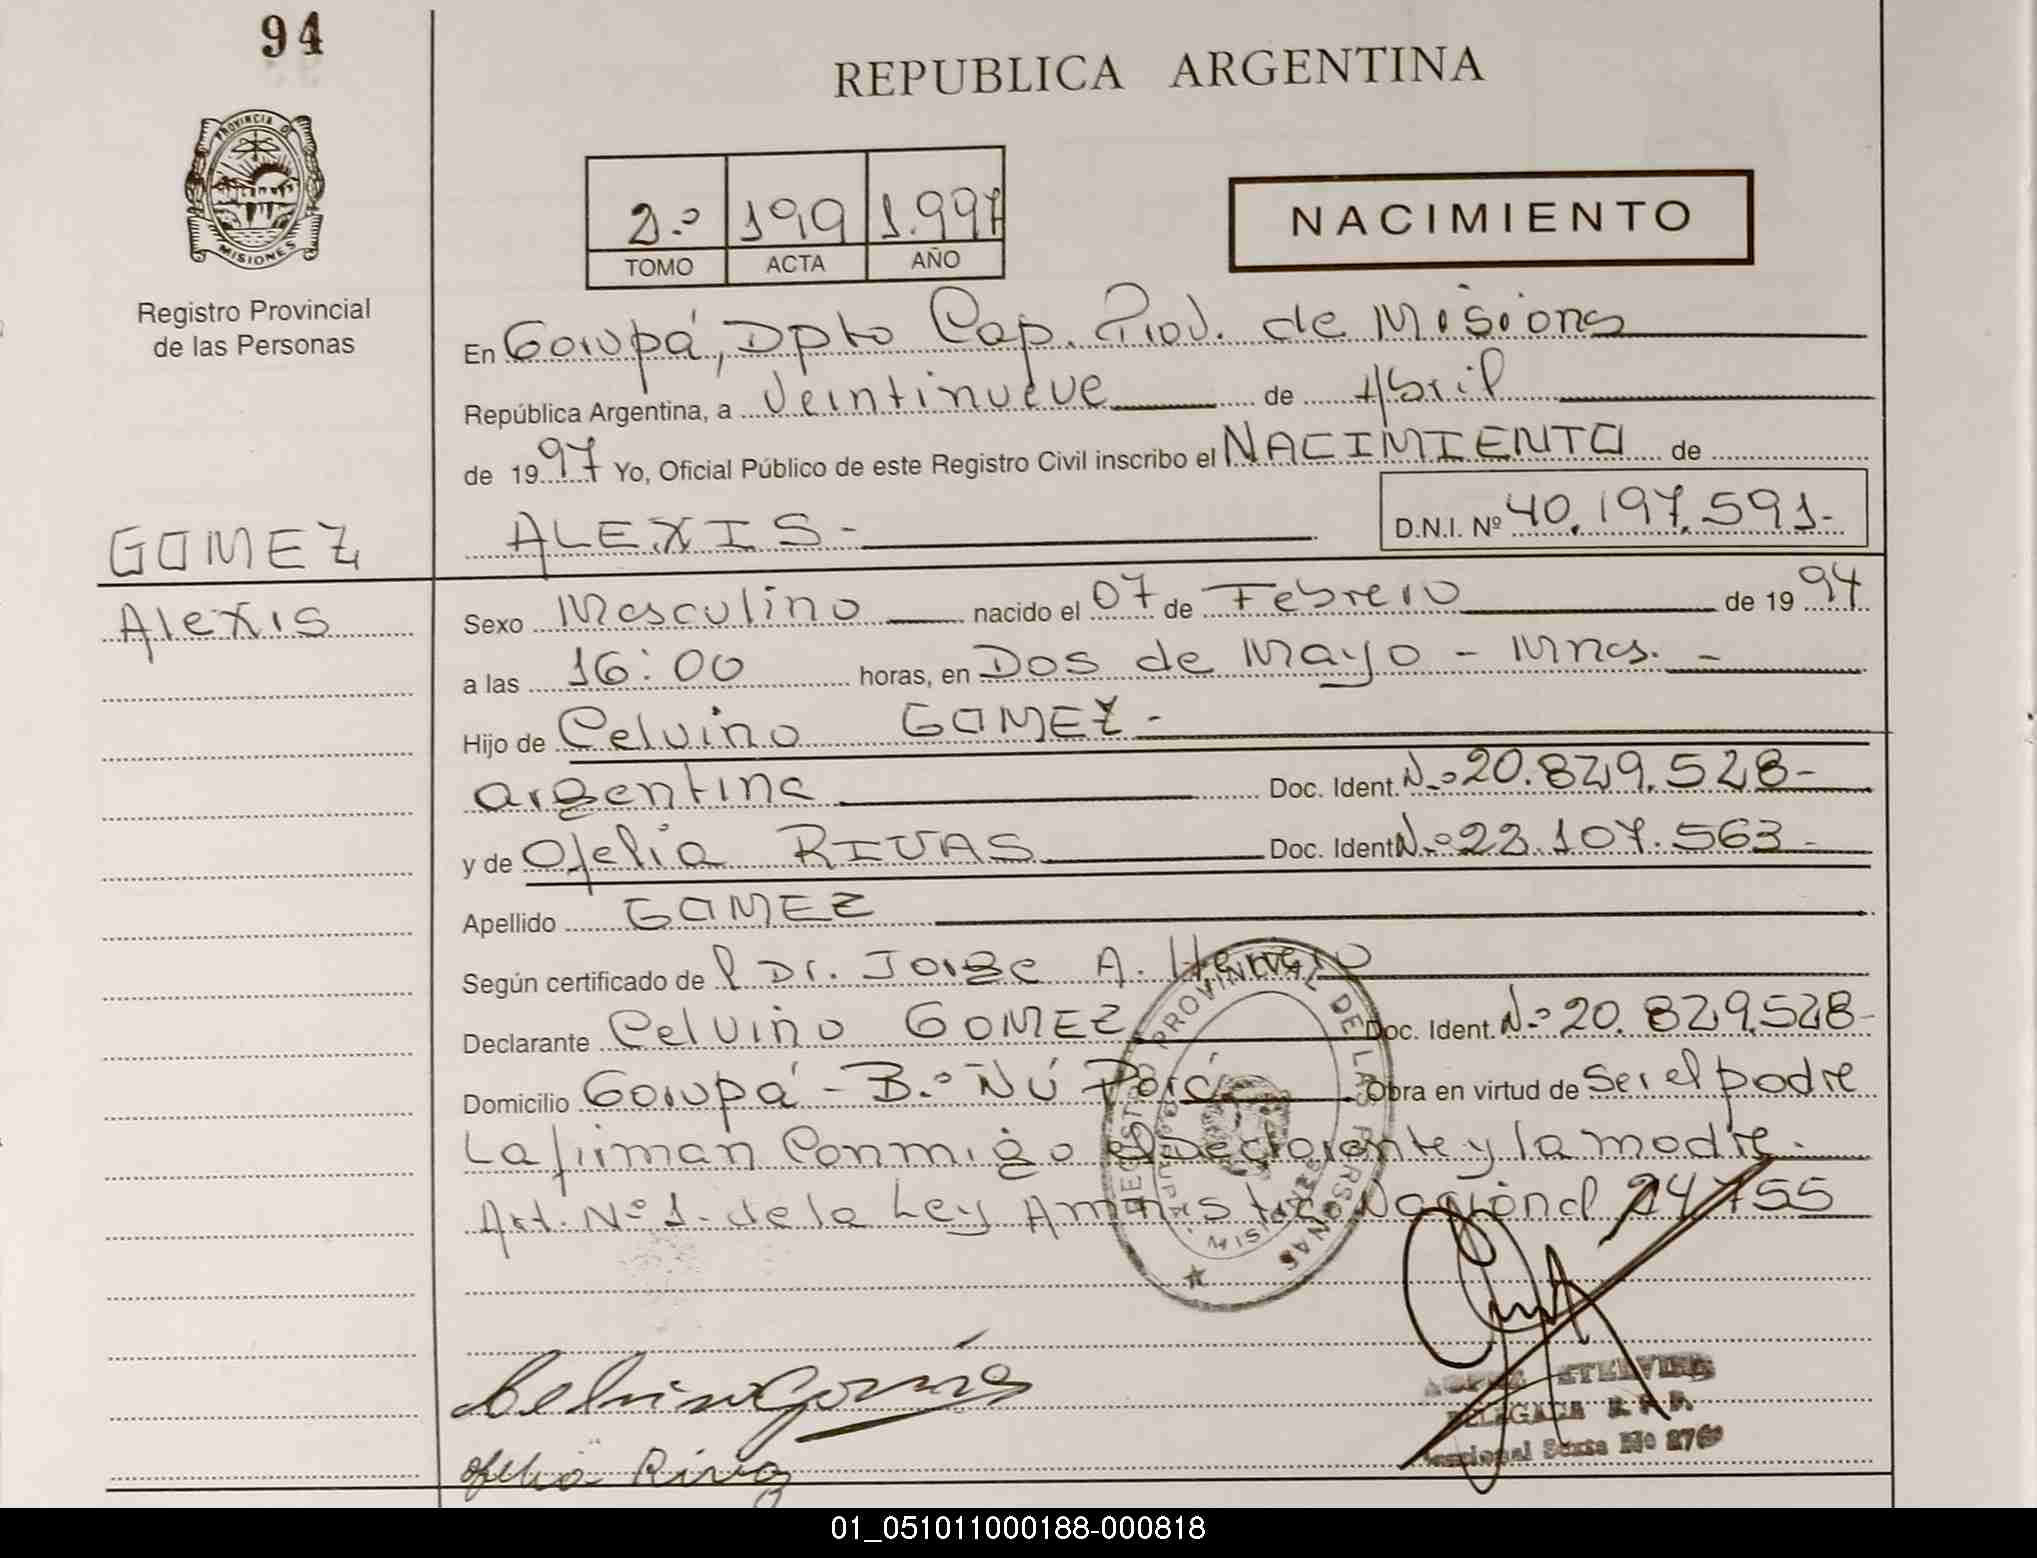 94
REPUBLICA ARGENTINA
PROVINCIA DE
MISIONES
2.º 199 1.997
TOMO ACTA AÑO
NACIMIENTO
Registro Provincial
de las Personas
En Garupá, Dpto Cap. Prov. de Misiones
República Argentina, a Veintinueve de Abril
de 1997 Yo, Oficial Público de este Registro Civil inscribo el NACIMIENTO de
GOMEZ
ALEXIS -
D.N.I. Nº 40.197.591-
Alexis
Sexo Masculino nacido el 07 de Febrero de 1994
a las 16:00 horas, en Dos de Mayo - Mnes. -
Hijo de Celvino GOMEZ -
argentina Doc. Ident. N.º 20.829.528-
y de Ofelia RIVAS Doc. Ident N.º 22.107.563-
Apellido GOMEZ
Según certificado de l Dr. Jorge A. Herrero
Declarante Celvino GOMEZ Doc. Ident. N.º 20.829.528-
Domicilio Garupá - B.º Ñú Porá Obra en virtud de Ser el padre
La firman Conmigo el Declarante y la madre.
Art. Nº 1. de la Ley Nacional 24755
REGISTRO PROVINCIAL DE LAS PERSONAS
Celvino Gomes
Ofelia Riva
ETELVINA
DELEGADA R.P.P.
Seccional Sexta Nº
01_051011000188-000818